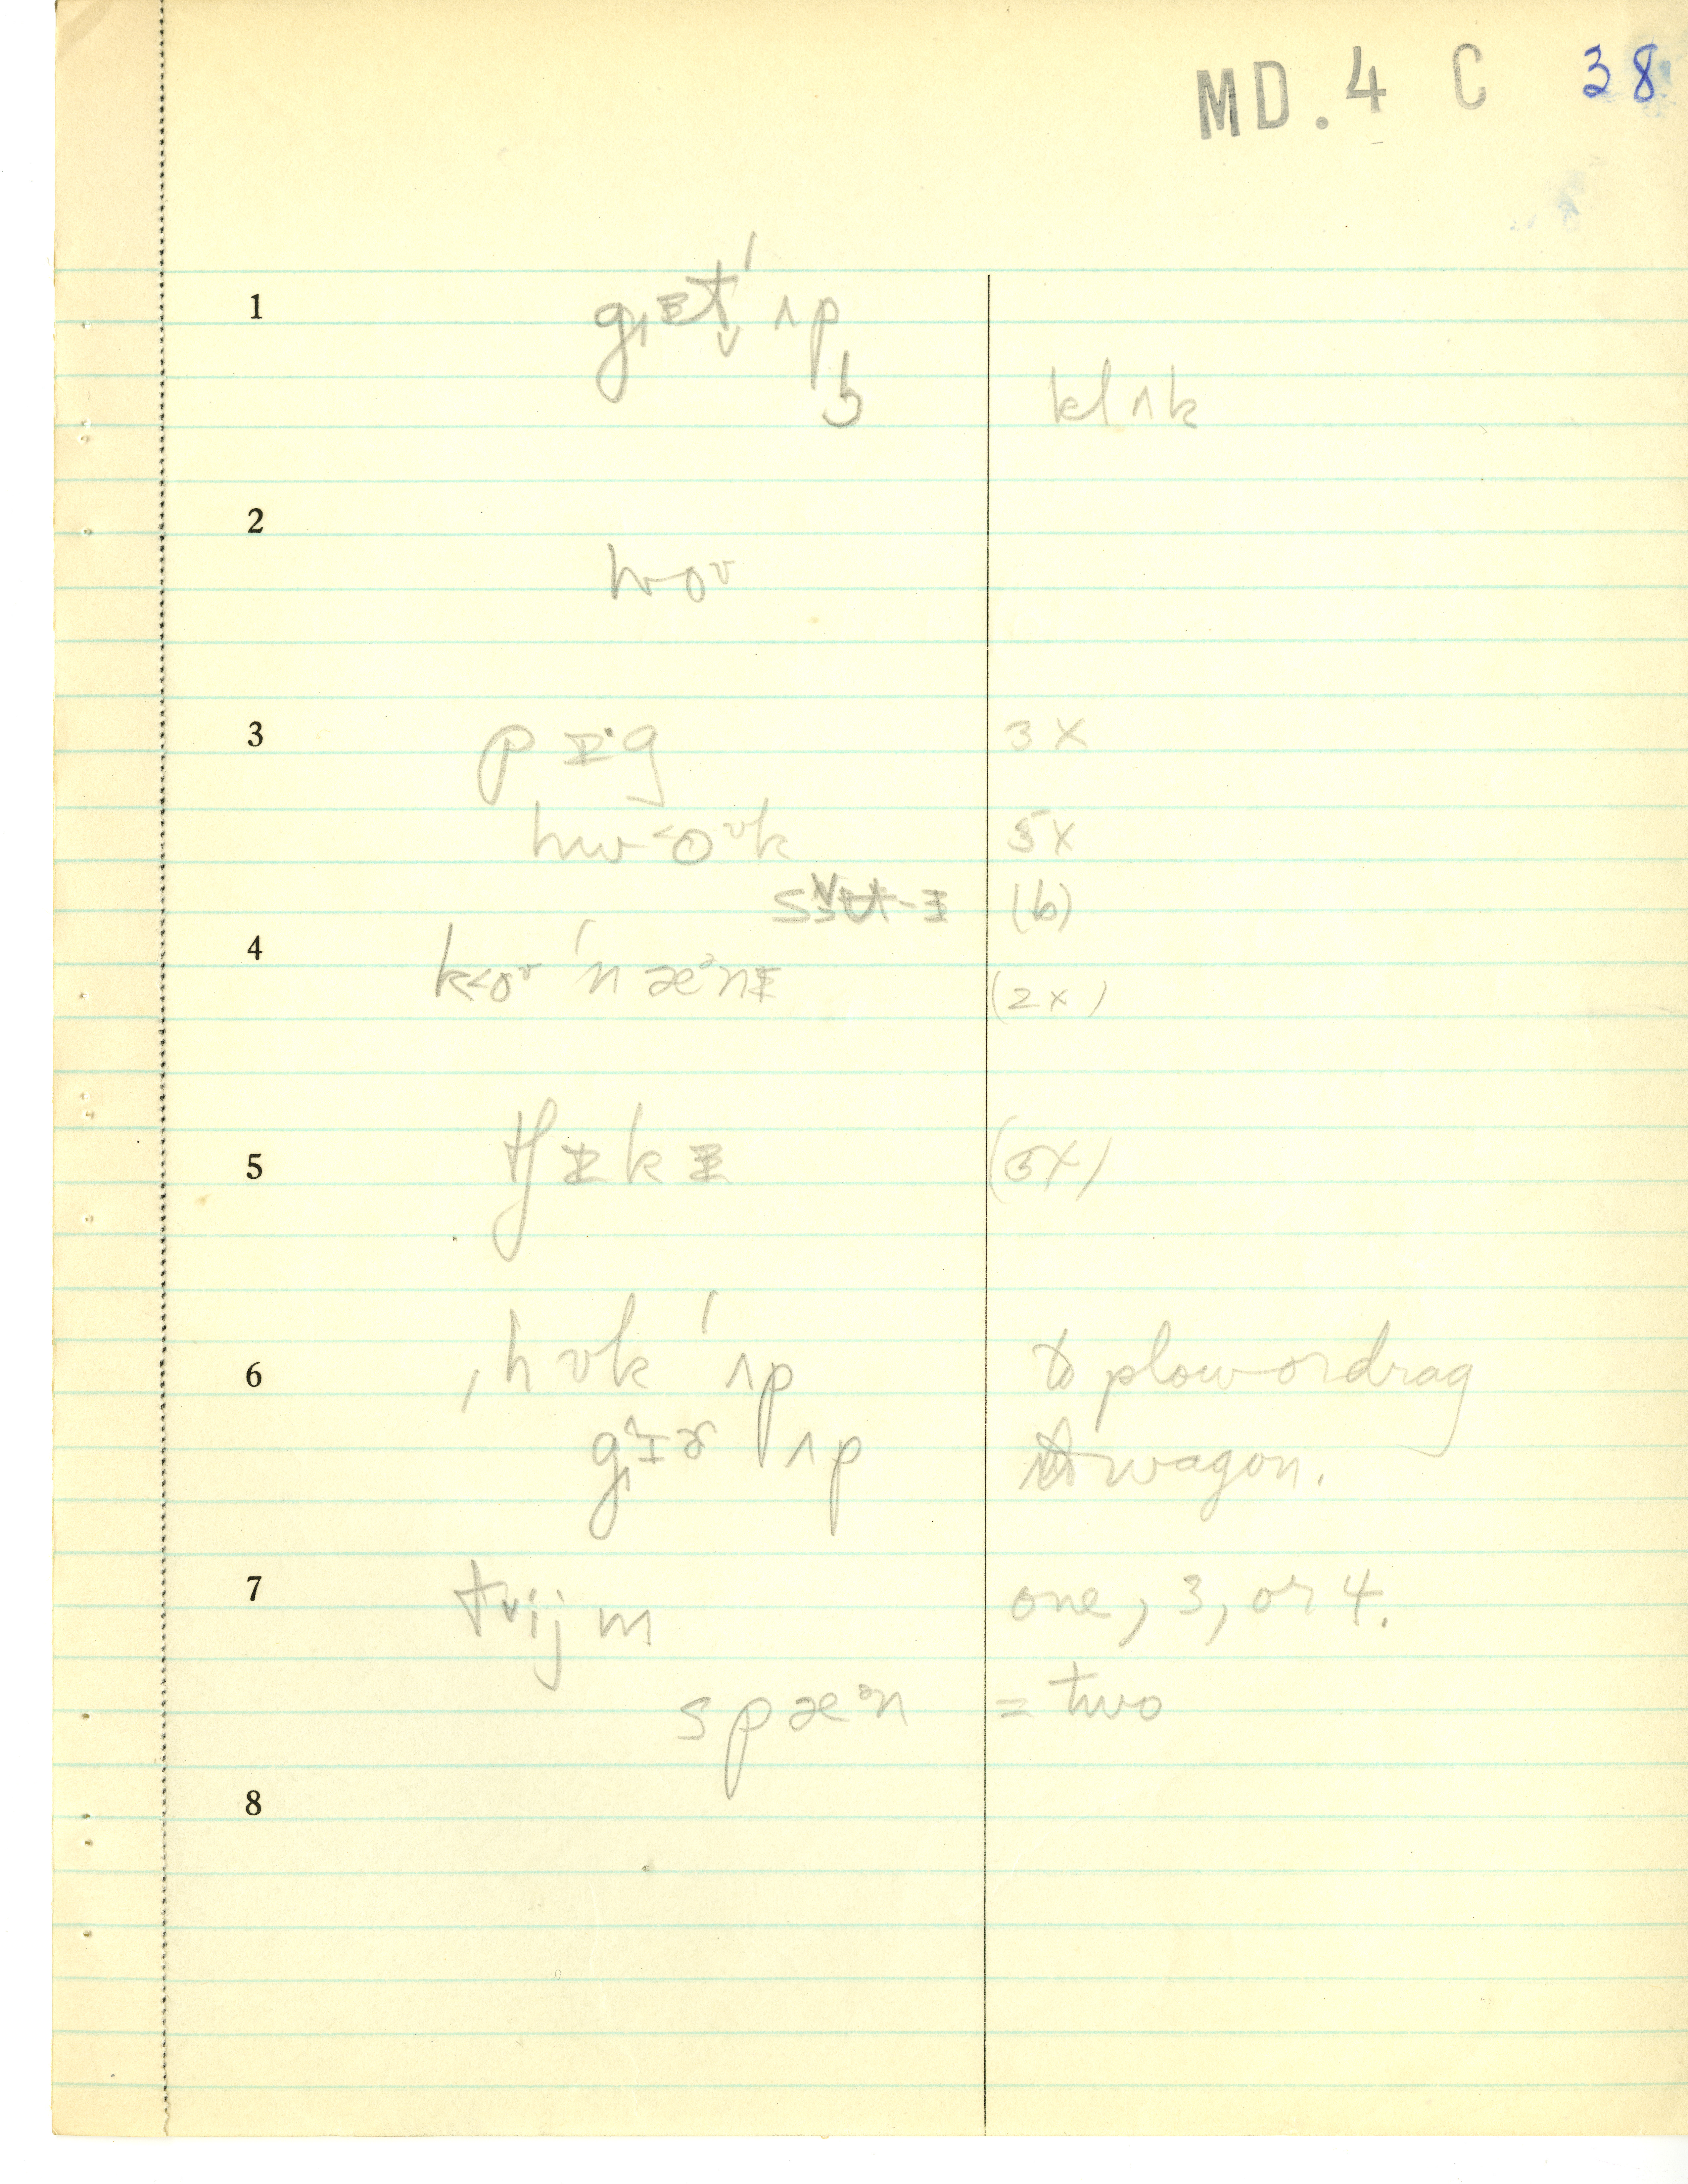 MD. 4 C 38
1 g̟ᵻt̬ ˈʌp
b klʌk
2
hoᶷ
3 pɪ·g 3X
hw<oᶷk 5X
(b)
4 k<oᶷ ˈnæᵊnɪ (2X)
5 tʃɪkɪ (5X)
6 ˌhʊk ˈʌp to plow or drag
g̟ɪɚ ʌp wagon.
7 tᵛijm one, 3, or 4.
spæᵊn = two
8